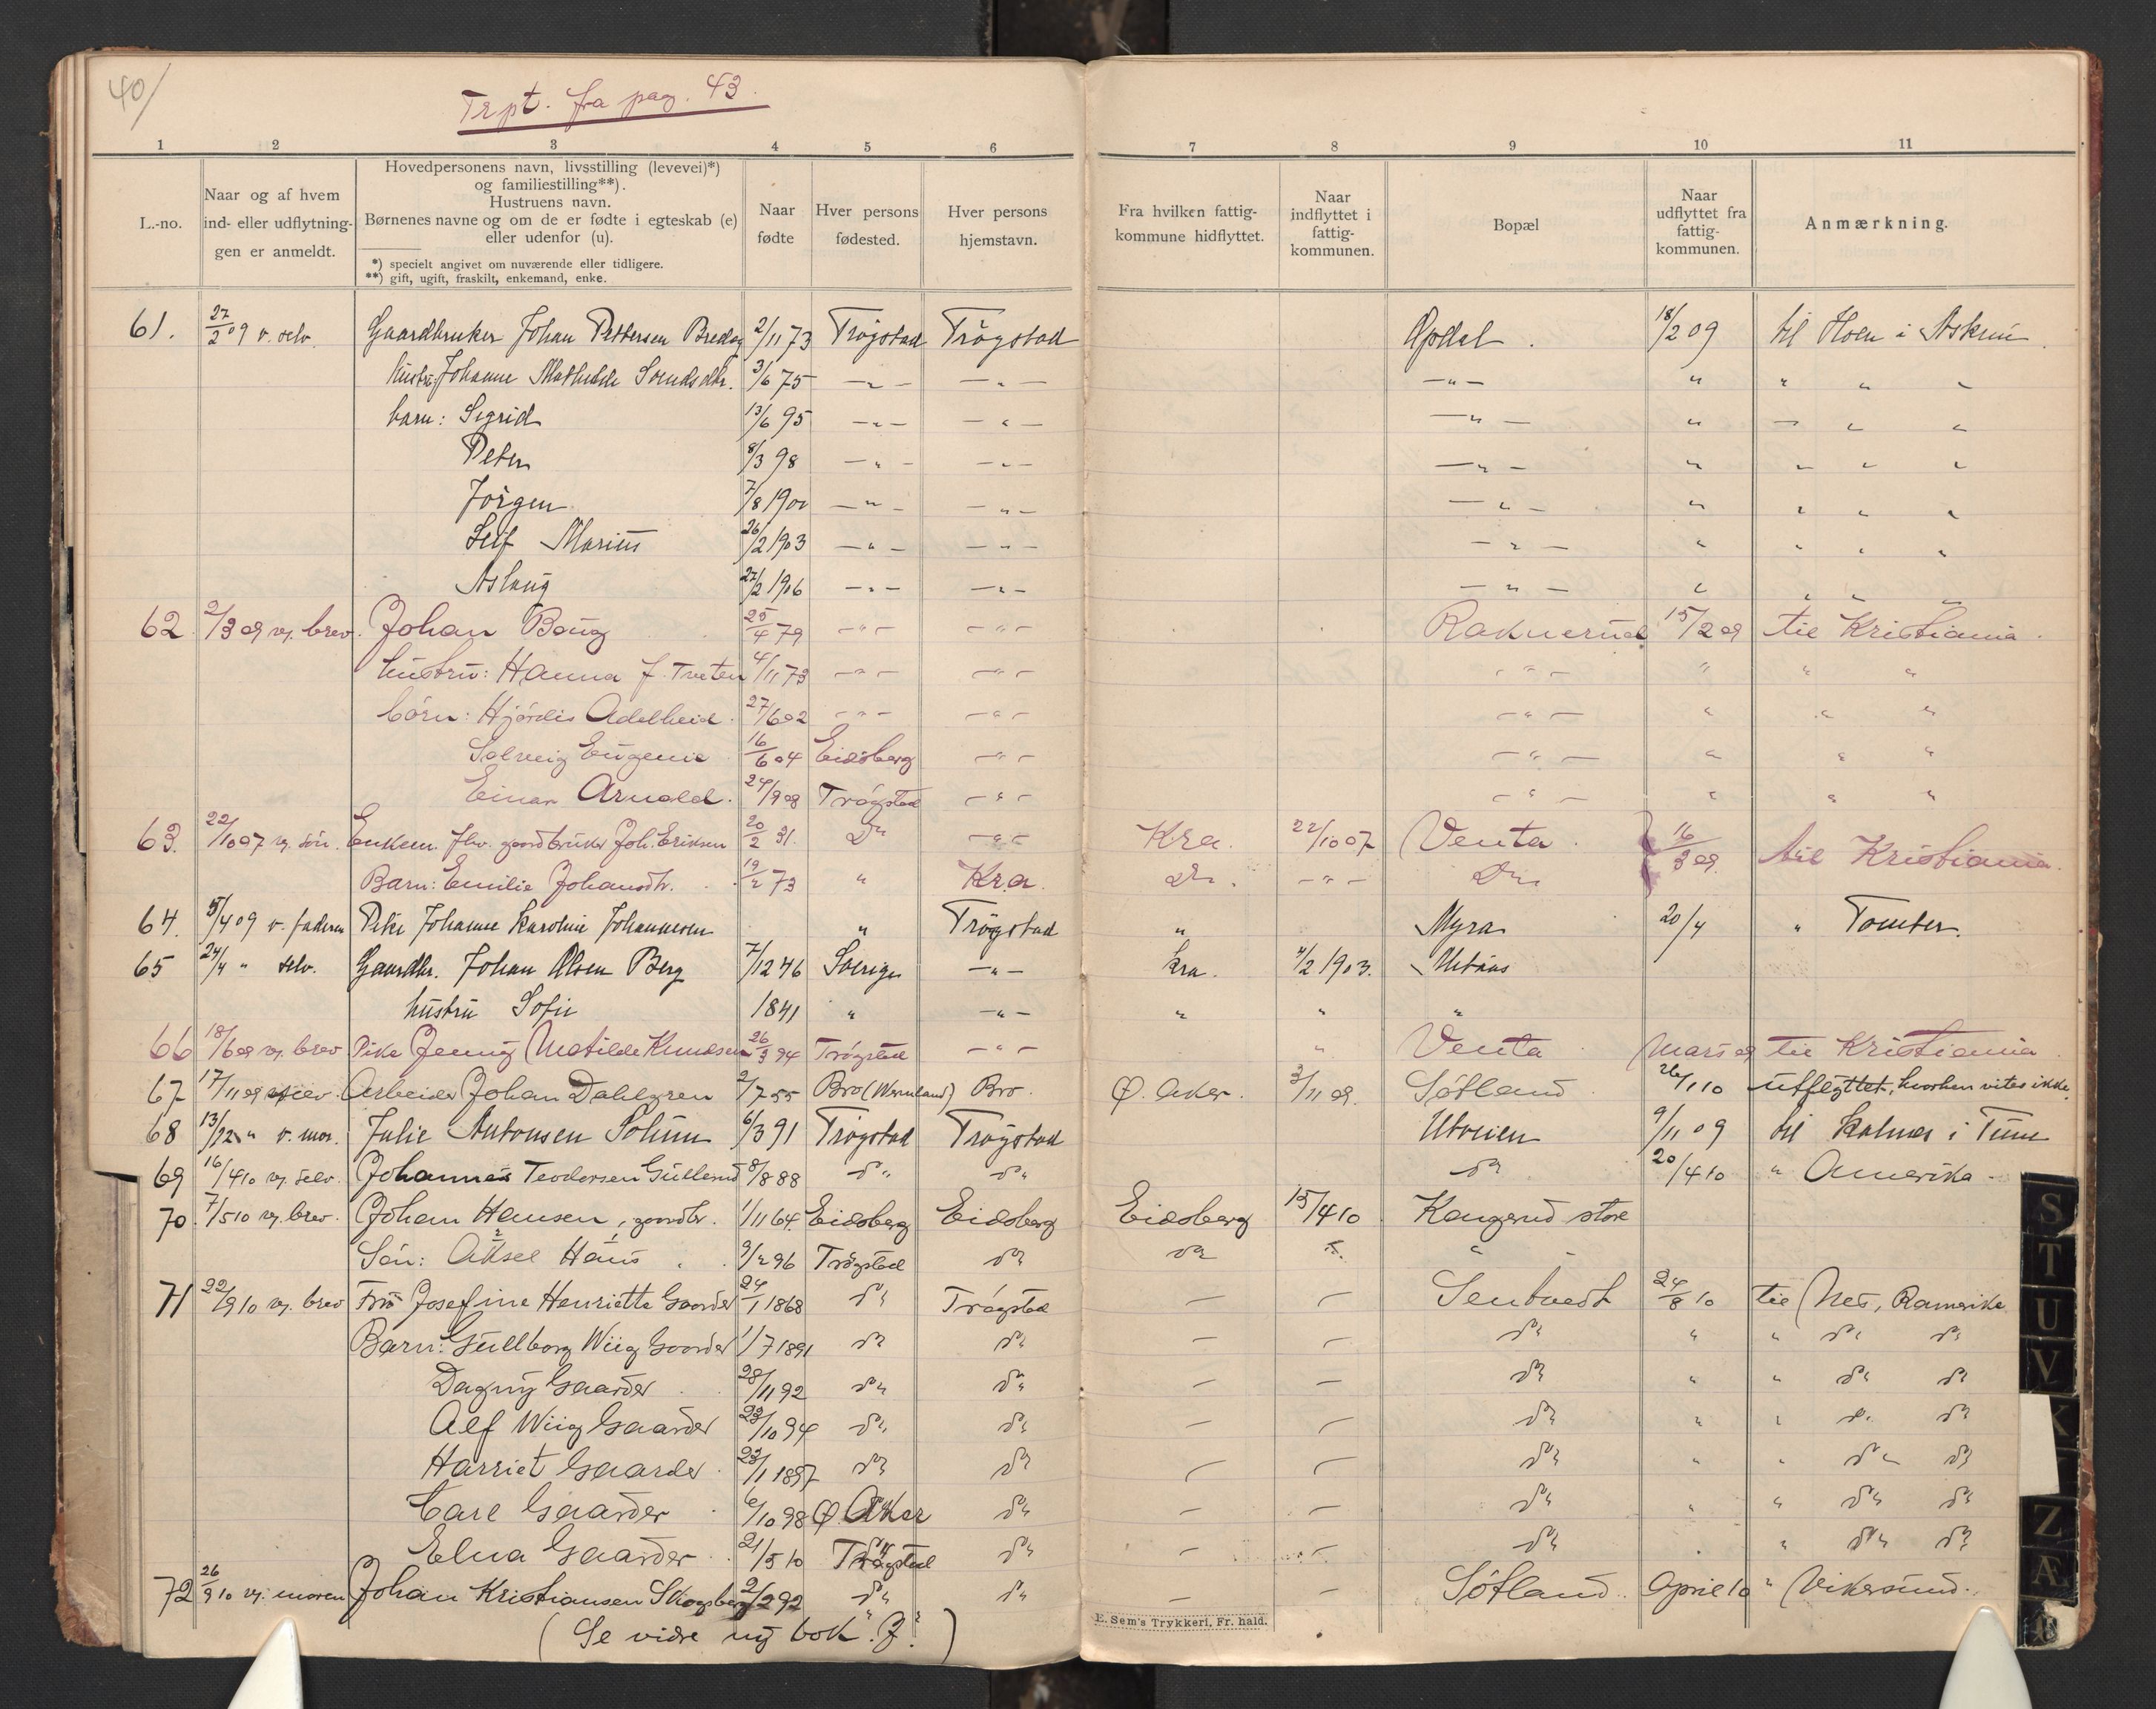 40/
Trpt. fra pag. 43.
1 2 3 4 5 6 7 8 9 10 11
L.-no.
Naar og af hvem
ind- eller udflytnin-
gen er anmeldt.
Hovedpersonens navn, livsstilling (levevei)*)
og familiestilling**).
Hustruens navn.
Børnenes navne og om de er fødte i egteskab (e)
eller udenfor (u).
*) specielt angivet om nuværende eller tidligere.
**) gift, ugift, fraskilt, enkemand, enke.
Naar
fødte
Hver persons
fødested.
Hver persons
hjemstavn.
Fra hvilken fattig-
kommune hidflyttet.
Naar
indflyttet i
fattig-
kommunen.
Bopæl
Naar
udflyttet fra
fattig-
kommunen.
Anmærkning.
61. 27/2 09 v. selv. Gaardbruker Johan Pettersen Bredog 2/11 73 Trögstad Trögstad Opdal. 18/2 09 til Hoen i Askim.
hustru Johanne Mathilde Svendsdtr. 3/6 75 — " — — " — — " — " " " "
barn: Sigrid 13/6 95 — " — — " — — " — " — " "
Peter 8/3 98 — " — — " — — " — " " " "
Jörgen 7/8 1900 — " — — " — — " — " " " "
Leif Marius 26/2 1903 — " — — " — — " — " " " "
Aslaug 27/2 1906 — " — — " — — " — " " " "
62 2/3 09 vj. brev. Johan Boug 25/4 79 — " — — " — Raknerud 15/2 09 til Kristiania.
hustru: Hanna J. Tveten 4/11 73 — " — — " — — " — " " "
börn: Hjördis Adelheid. 27/6 02 — " — — " — — " — " " "
Solveig Eugenie 16/6 04 Eidsberg — " — — " — " " "
Einar Arnold. 24/9 08 Trögstad — " — — " — " " "
63. 22/10 07 vj. sön. Enkem. fhv. gaardbruker Joh. Eriksen 20/2 31. Do — " — Kra. 22/10 07 Venta. 16/3 09. til Kristiania.
Barn: Emilie Johansdtr. 19/2 73 " Kra. Do. — " — Do
64. 5/4 09 v. faderen Pike Johanne Karoline Johannesen " Trögstad " Myra 20/4 " Tomter.
65 24/4 " selv. Gaardbr. Johan Olsen Berg 7/12 46 Sverige — " — Kra. 4/2 1903.
hustru Sofie 1841 " — " — " " "
66 18/6 09 vj. brev Pike Jenny Matilde Knudsen 26/3 94 Trögstad — " — " Venta Mars 09 til Kristiania
67 17/11 09 Arbeider Johan Dahlgren 2/7 55 Bro (Wermland) Bro. Ø. Aker. 3/11 09. Sötland 26/1 10 utflyttet, hvorhen vites ikke.
68 13/12 " v. mor. Julie Antonsen Solum 6/3 91 Trögstad Trögstad Utveien 9/11 09 til Kalnes i Tune
69 16/4 10 vj. selv. Johannes Teodorsen Gullerud 8/8 88 do do do 20/4 10 " Amerika.
70. 7/5 10 vj. brev. Johan Hansen, gaardbr. 1/11 64 Eidsberg Eidsberg Eidsberg 15/4 10 Kangerud store
Sön: Aksel Hans. 9/2 96 Trögstad do do "
71 22/9 10 vj. brev Fru Josefine Henriette Gaarder 24/1 1868 do Trögstad — — Sentvedt 24/8 10 til Nes, Romerike
Barn: Gullborg Wiig Gaarder 1/7 1891 do do — — do " " do do
Dagny Gaarder 28/11 92 do do — — do " " do do
Alf Wiig Gaarder 23/10 94 do do — — do " " do do
Harriet Gaarder. 23/1 1897 do do — — do " " do do
Carl Gaarder. 6/10 98 Ø. Aker do — — do " " do do
Elna Gaarder. 21/5 10 Trögstad do — — do " do do
72 26/9 10 vj. moren Johan Kristiansen Skogsberg 2/2 92 do do — — Sötland April 10 " Vikersund.
(Se videre ny bok "J".)
E. Sem's Trykkeri, Fr. hald.
S
T
U
V
Z
Æ